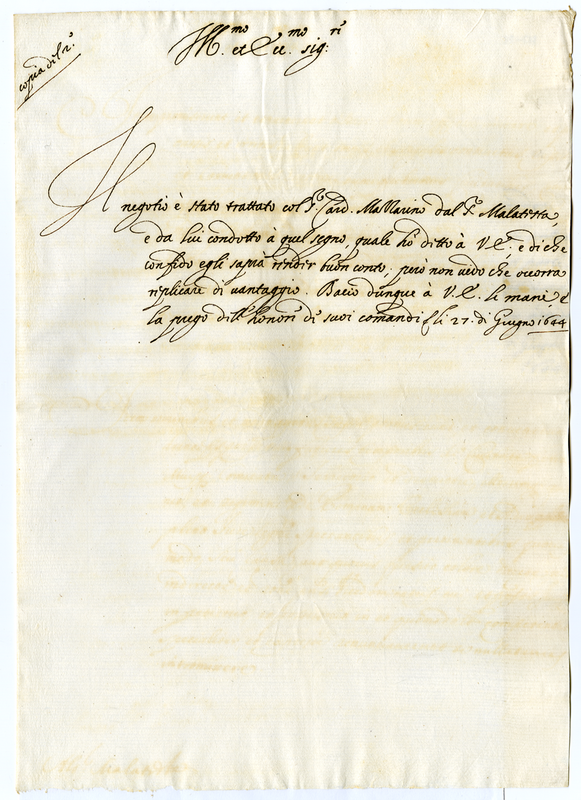 copia di l.ra
Ill.mo et Ecc.mo sig.ri
Il negotio è stato trattato col S.r Card. Mazzarino dal S.r Malatesta,
e da lui condotto à quel segno, quale hò ditto à V.E., e di che
confido egli saprà render buon conto; però non uedo che occorra
replicare di vantaggio. Bacio dunque à V.E. le mani e
la prego dell' honore de suoi comandi li 27. di Giugno 1644